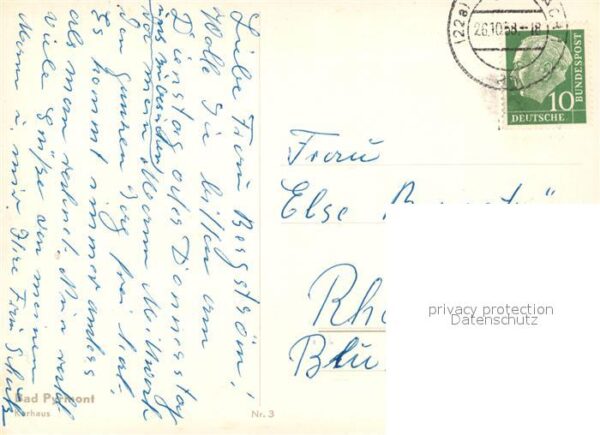 Liebe Frau Bergström!
Wolle Sie bitten am
Dienstag oder Donnerstag
uns zu besuchen
da mein Mann Mittwoch
den ganzen Tag frei hat.
Es kommt immer anders
als man rechnet. Nun recht
viele Grüße von meinem
Mann u. mir. Ihre Frau
Bad Pyrmont
Kurhaus
Nr. 3
(22a)
26.10.58-18
10
DEUTSCHE
BUNDESPOST
Frau
Else
Rh
Blu
privacy protection
Datenschutz